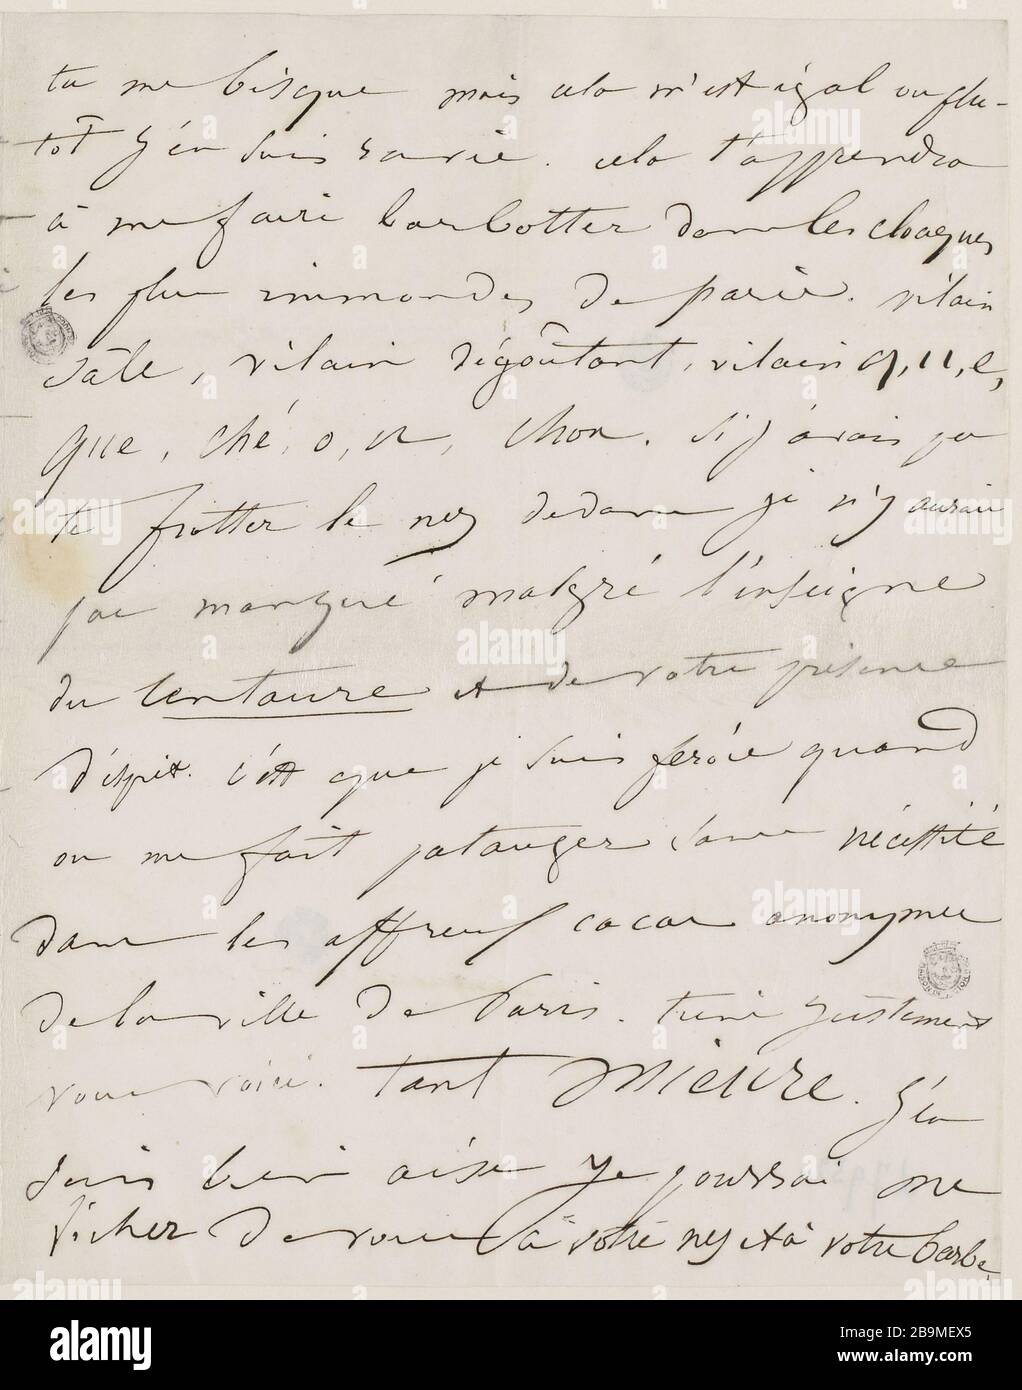 tu me bisque mais cela m'est égal ou plu-
tôt j'en suis ravie. cela t'apprendra
à me faire barbotter dans les cloaques
les plus immondes de paris. vilain
sâle, vilain dégoûtant, vilain q, u, e,
que, ché, o, n, chon. si j'avais pu
te frotter le nez dedans je n'y aurais
pas manqué malgré l'enseigne
du Centaure et de votre présence
d'esprit. c'est que je suis féroce quand
on me fait patauger sans nécessité
dans les affreux cacas anonymes
de la ville de Paris. tiens justement
vous voici. tant mieux. J'en
suis bien aise je pourrai me
ficher de vous à votre nez et à votre barbe.
alamy
Image ID: 2B9MEX5
www.alamy.com